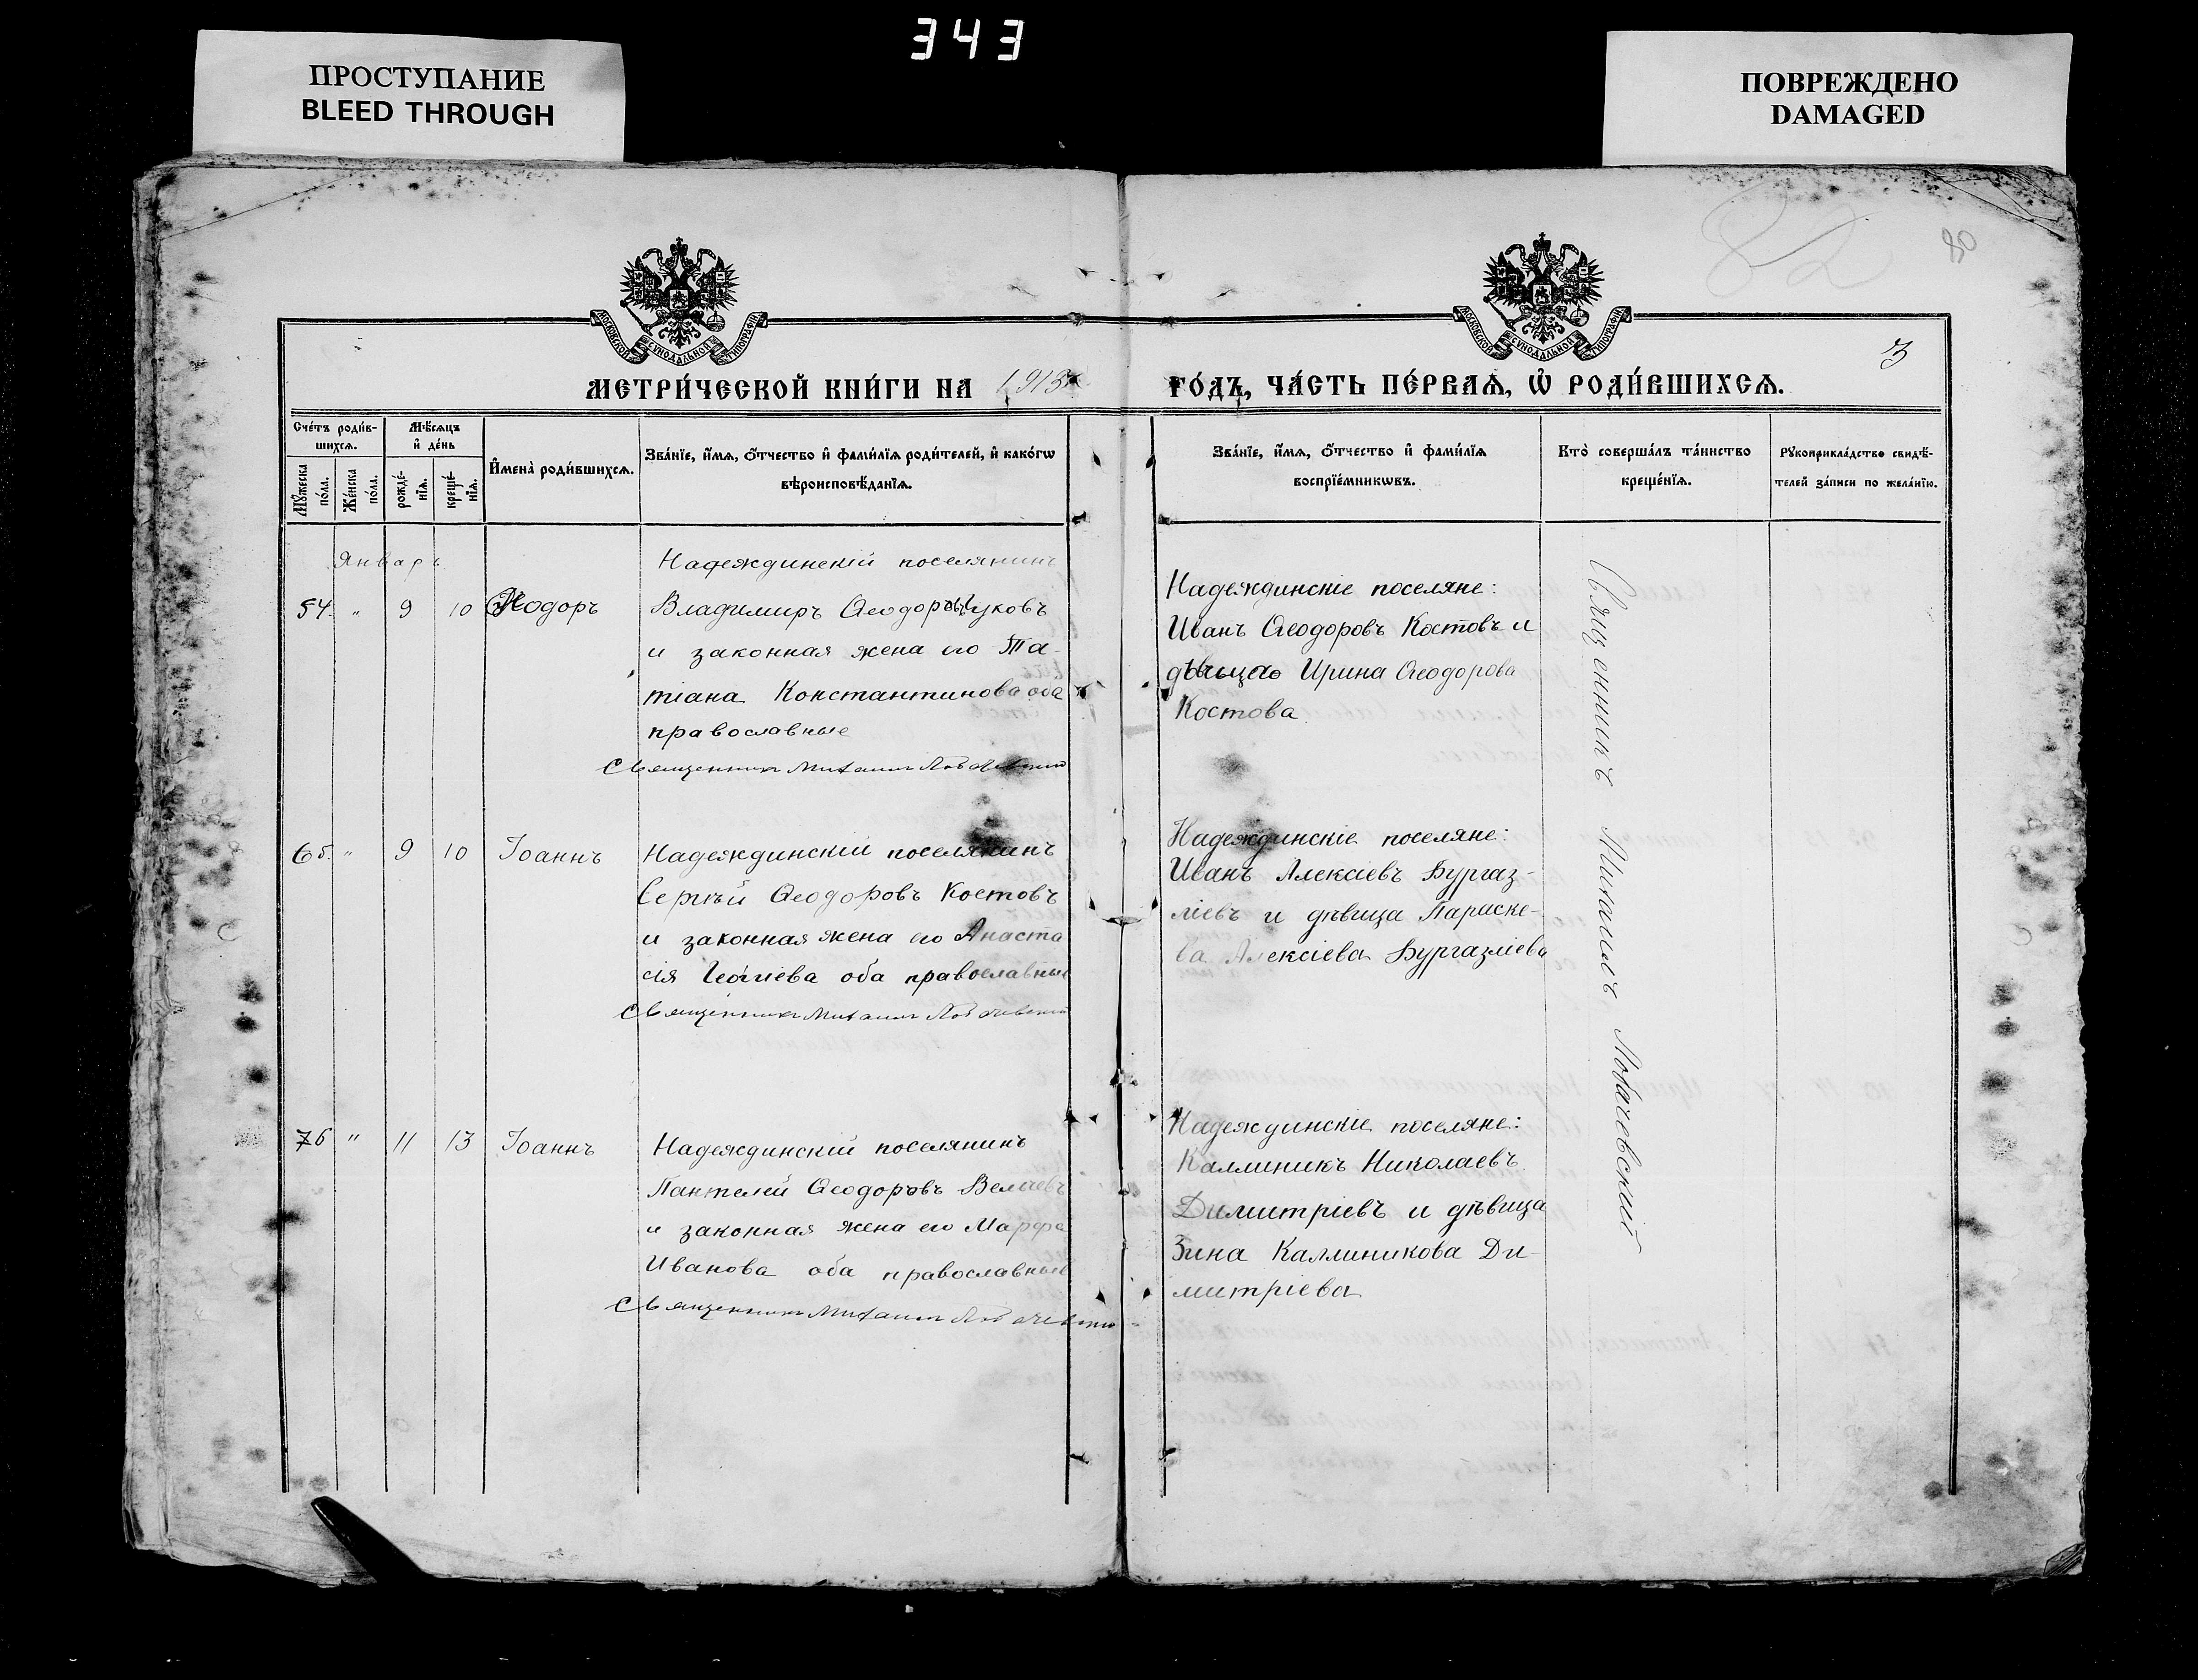 343
ПРОСТУПАНИЕ
BLEED THROUGH
ПОВРЕЖДЕНО
DAMAGED
82
80
МОСКОВСКОЙ СѴНОДАЛЬНОЙ ТИПОГРАФІИ
МОСКОВСКОЙ СѴНОДАЛЬНОЙ ТИПОГРАФІИ
3
МЕТРИ́ЧЕСКОЙ КНИ́ГИ НА 1913
ГО́ДЪ, ЧА́СТЬ ПЕ́РВАѦ, Ѡ҆ РОДИ́ВШИХСѦ.
Сче́тъ роди́в-
шихсѧ.
Мѣ́сѧцъ
и҆ де́нь
Мꙋ́жеска по́ла.
Же́нска по́ла.
рожде́-нїѧ.
креще́-нїѧ.
И҆мена̀ роди́вшихсѧ.
Зва́нїе, и҆́мѧ, ѻ҆́тчество и҆ фами́лїѧ роди́телей, и҆ како́гѡ
вѣроисповѣ́данїѧ.
Зва́нїе, и҆́мѧ, ѻ҆́тчество и҆ фами́лїѧ
воспрїе́мникѡвъ.
Кто̀ соверша́лъ та́инство
креще́нїѧ.
Рꙋкоприкла́дство свидѣ́-
телей за́писи по жела́нїю.
Январь
54. " 9 10 Ѳеодоръ
Надеждинскій поселянинъ
Владимиръ Ѳеодоровъ
и законная жена его Та-
тіана Константинова оба
православные
Священникъ Михаилъ Лобачевскій
Надеждинскіе поселяне:
Иванъ Ѳеодоровъ Костовъ и
дѣвица Ирина Ѳеодорова
Костова
Священникъ Михаилъ Лобачевскій
65. " 9 10 Іоаннъ
Надеждинскій поселянинъ
Сергѣй Ѳеодоровъ Костовъ
и законная жена его Анаста
сія Георгіева оба православные
Священникъ Михаилъ Лобачевскій
Надеждинскіе поселяне:
Иванъ Алексіевъ Бургаз-
ліевъ и дѣвица Параске-
ва Алексіева Бургазліева
76 " 11 13 Іоаннъ
Надеждинскій поселянинъ
Пантелей Ѳеодоровъ Велчевъ
и законная жена его Марфа
Иванова оба православные
Священникъ Михаилъ Лобачевскій
Надеждинскіе поселяне:
Каллиникъ Николаевъ
Димитріевъ и дѣвица
Зина Каллиникова Ди-
митріева